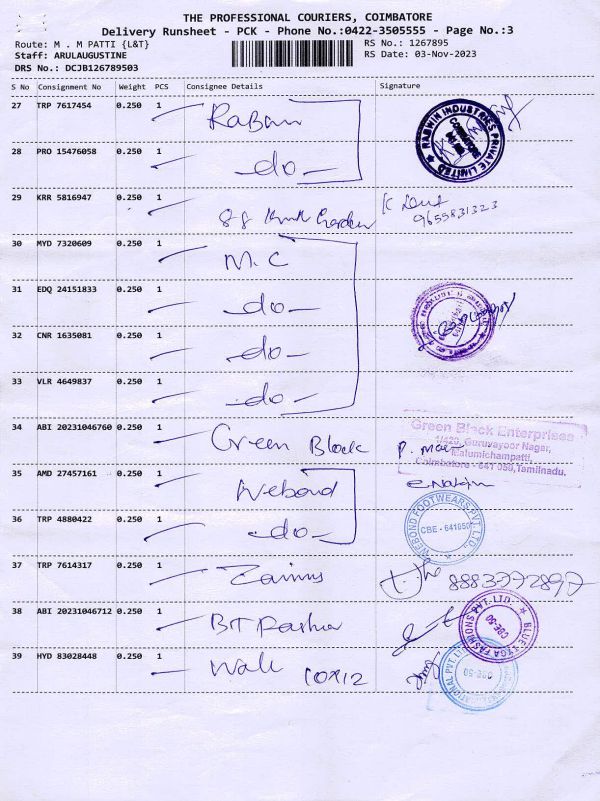 THE PROFESSIONAL COURIERS, COIMBATORE
Delivery Runsheet - PCK - Phone No.:0422-3505555 - Page No.:3
Route: M . M PATTI {L&T}
RS No.: 1267895
Staff: ARULAUGUSTINE
RS Date: 03-Nov-2023
DRS No.: DCJB126789503
S No Consignment No Weight PCS Consignee Details Signature
27 TRP 7617454 0.250 1
RABWIN INDUSTRIES PRIVATE LIMITED
28 PRO 15476058 0.250 1 -do-
29 KRR 5816947 0.250 1
9655831323
30 MYD 7320609 0.250 1 M.C
31 EDQ 24151833 0.250 1 -do-
32 CNR 1635081 0.250 1 -do-
33 VLR 4649837 0.250 1 -do-
34 ABI 20231046760 0.250 1 Green Block
Green Block Enterprises
1/429, Guruvayoor Nagar,
Malumichampatti,
Coimbatore - 641 050, Tamilnadu.
35 AMD 27457161 0.250 1 Webond
36 TRP 4880422 0.250 1 -do-
WEBOND FOOTWEARS PVT LTD.
CBE - 641050
37 TRP 7614317 0.250 1
38 ABI 20231046712 0.250 1
FASHIONS PVT. LTD.
CBE-50
39 HYD 83028448 0.250 1